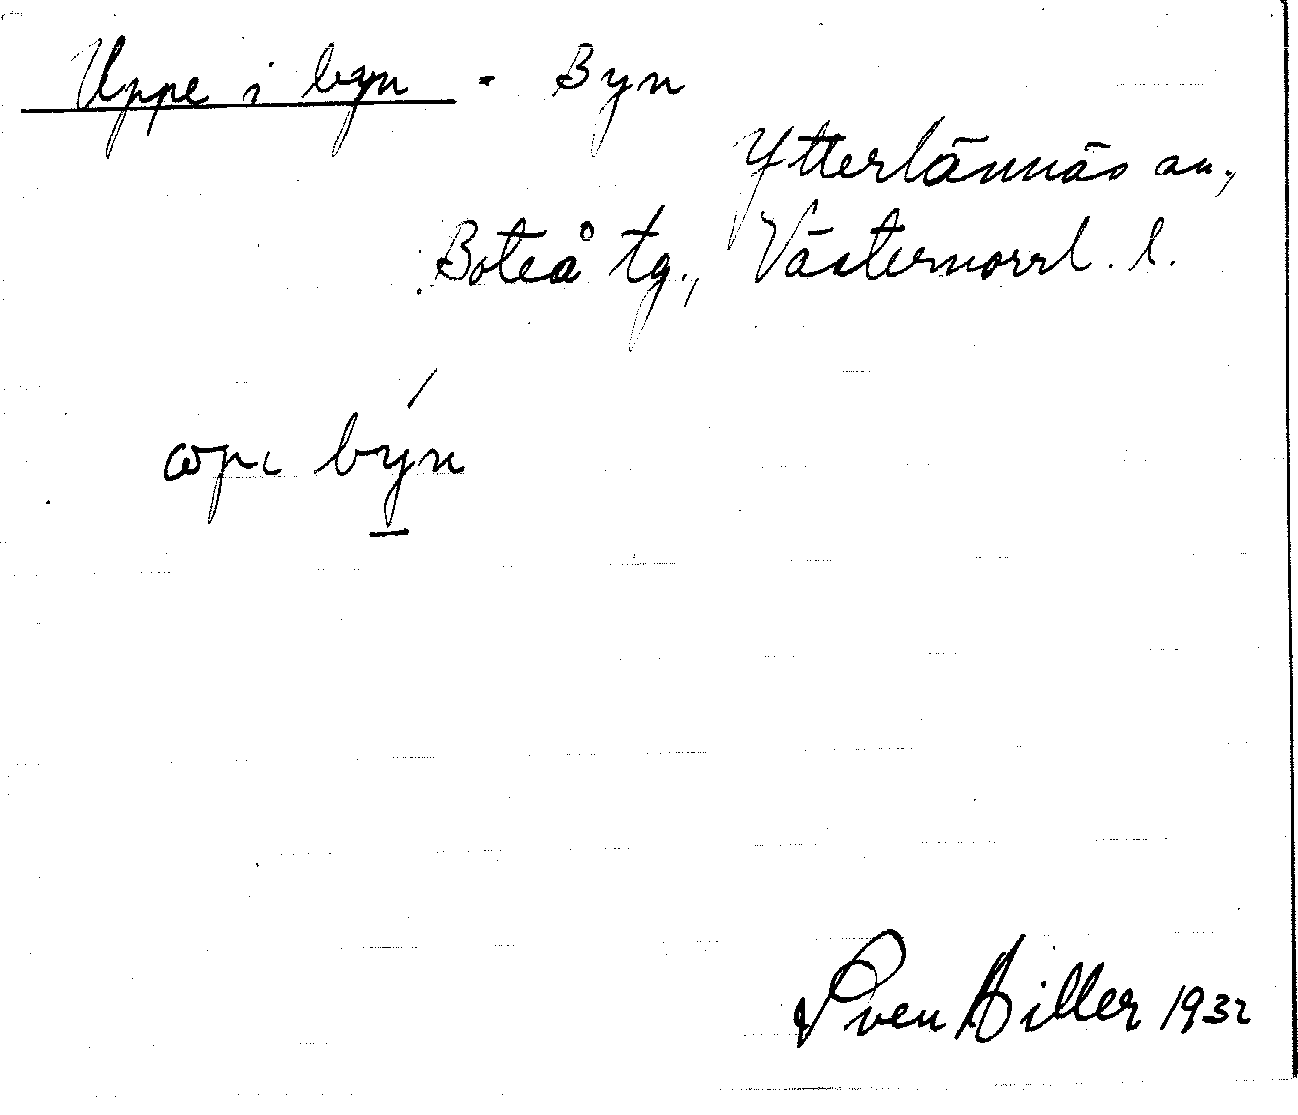 Uppe i byn = Byn
Ytterlännäs sn,
Boteå tg., Västernorrl. l.
býn
Sven Hiller 1932